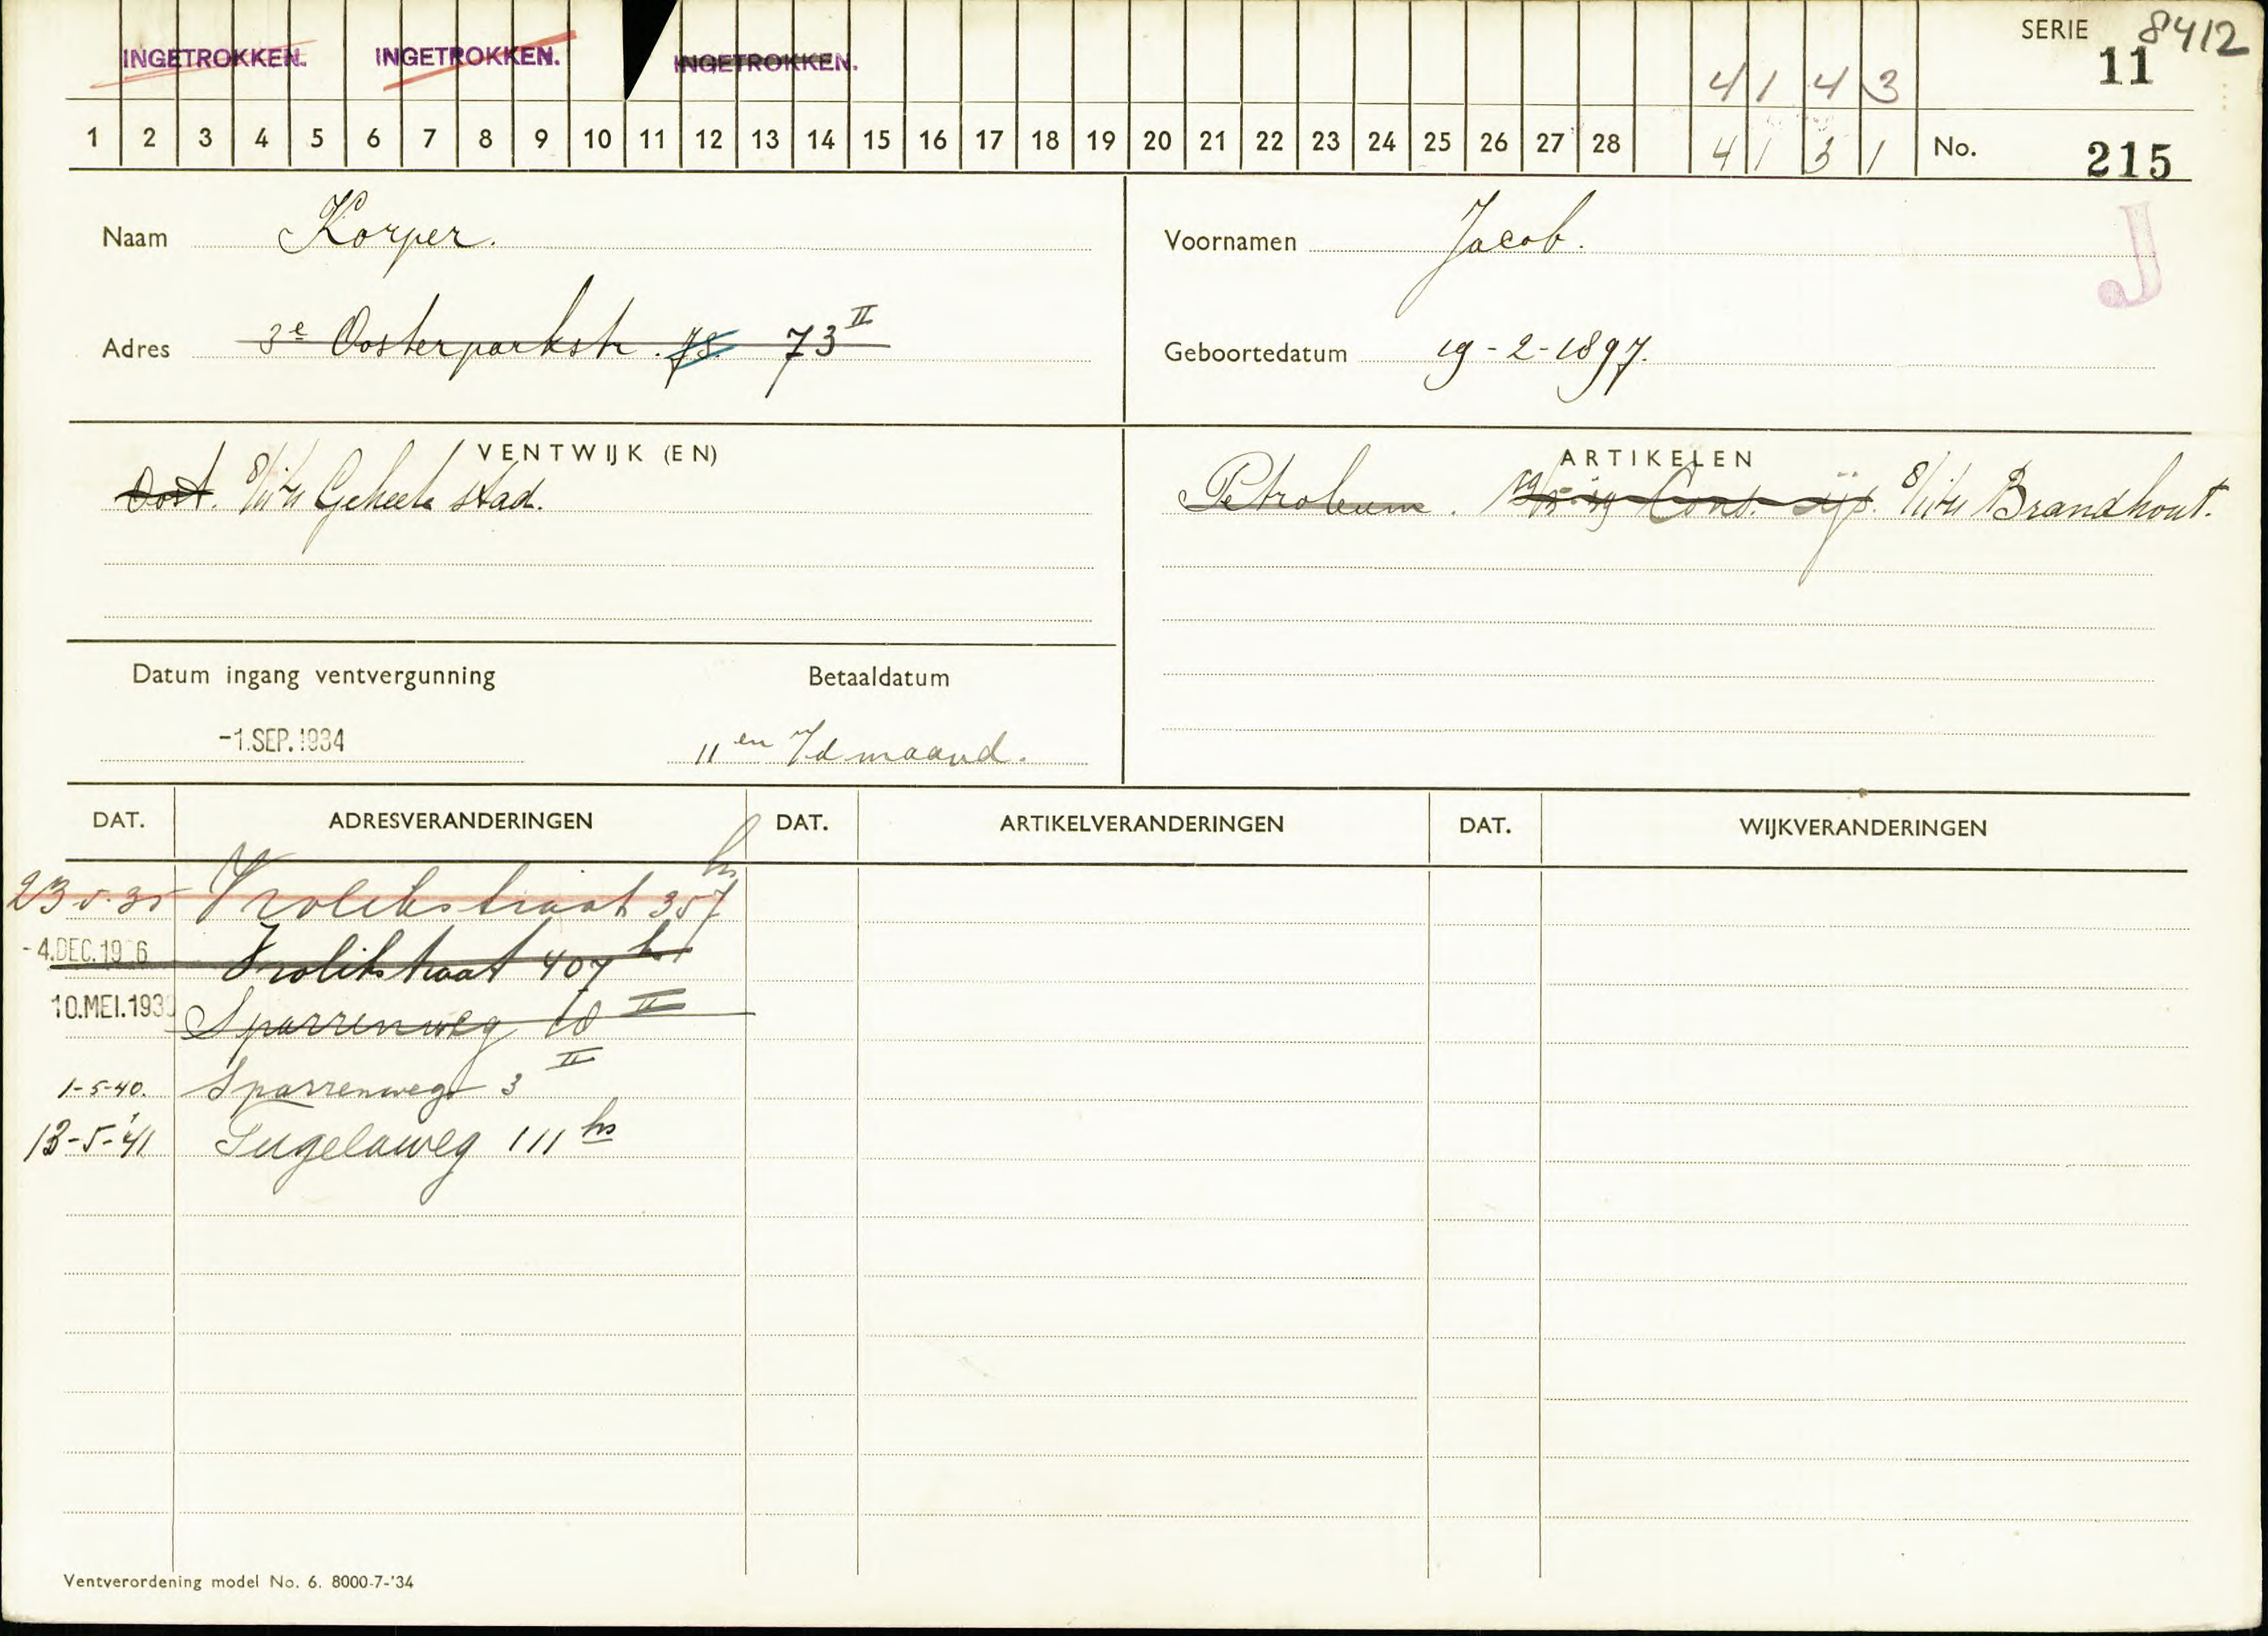 INGETROKKEN. INGETROKKEN. INGETROKKEN. 4 1 4 3 SERIE 8412
11
1 2 3 4 5 6 7 8 9 10 11 12 13 14 15 16 17 18 19 20 21 22 23 24 25 26 27 28 4 1 3 1 No. 215
Naam Korper. Voornamen Jacob. J
Adres 3e Oosterparkstr. 73 II Geboortedatum 19-2-1897.
VENTWIJK (EN) ARTIKELEN
Oost. Geheele stad. Petroleum. Cons. ijs. Brandhout.
Datum ingang ventvergunning Betaaldatum
-1.SEP.1934 11en 7d maand.
DAT. ADRESVERANDERINGEN DAT. ARTIKELVERANDERINGEN DAT. WIJKVERANDERINGEN
23-5-35 Vrolikstraat 357 hs
-4.DEC.19 6 Vrolikstraat 407 hs
10.MEI.1939 Sparrenweg 18 II
1-5-40. Sparrenweg 3 II
13-5-'41 Tugelaweg 111 hs
Ventverordening model No. 6. 8000-7-'34